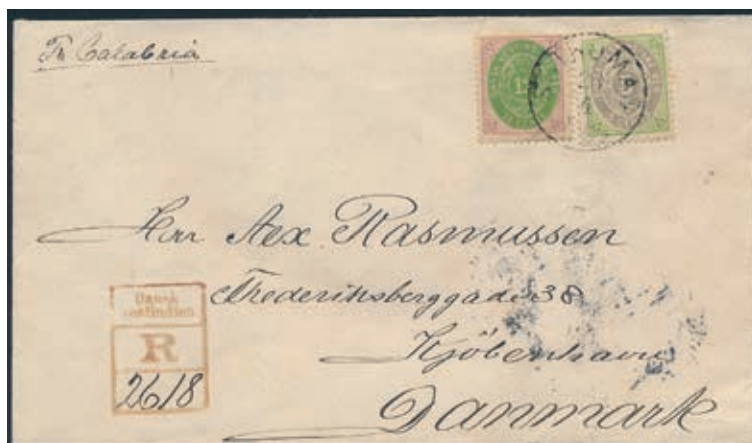 Pr Calabria
ST. THOMAS
Herr Alex Rasmussen
Frederiksberggade 38
Kjöbenhavn
Danmark
Dansk
Vestindien
R
2618